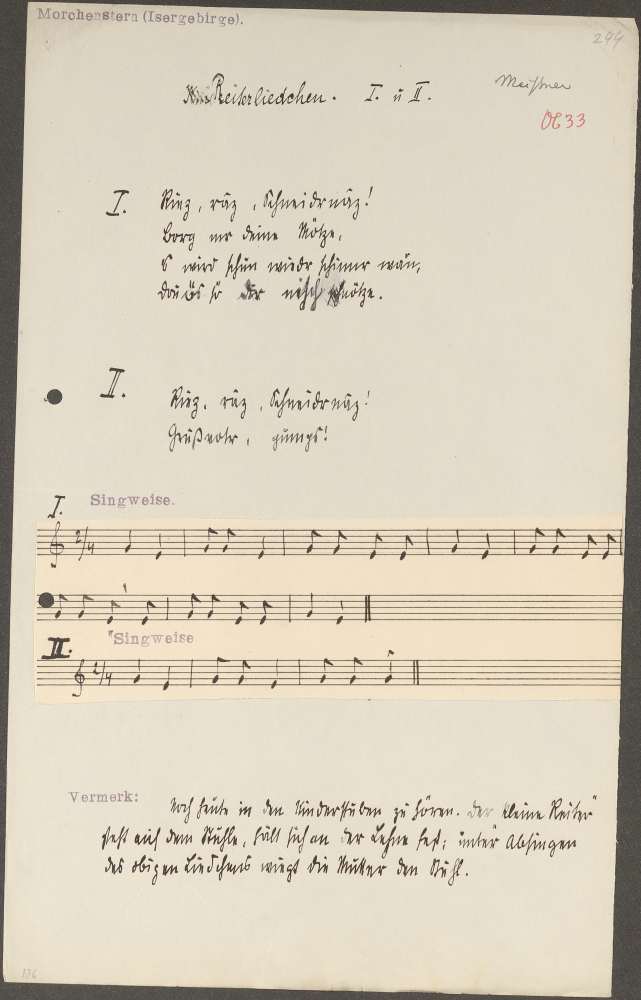 Morchenstern (Isergebirge).
294
Reiterliedchen. I. u II.
Meißner
33
I. Riez, räz, Schneidrnäz!
Borg mr deine Mötze,
s wird schun wiedr schinnr wän,
dou ös sö dr nösch nötze.
II. Riez, räz, Schneidrnäz!
Grußvotr, pumps!
I. Singweise.
2/4
II. Singweise
2/4
Vermerk: Noch heute in den Kinderstuben zu hören. Der kleine Reiter
steht auf dem Stuhle, hält sich an der Lehne fest; unter Absingen
des obigen Liedchens wiegt die Mutter den Stuhl.